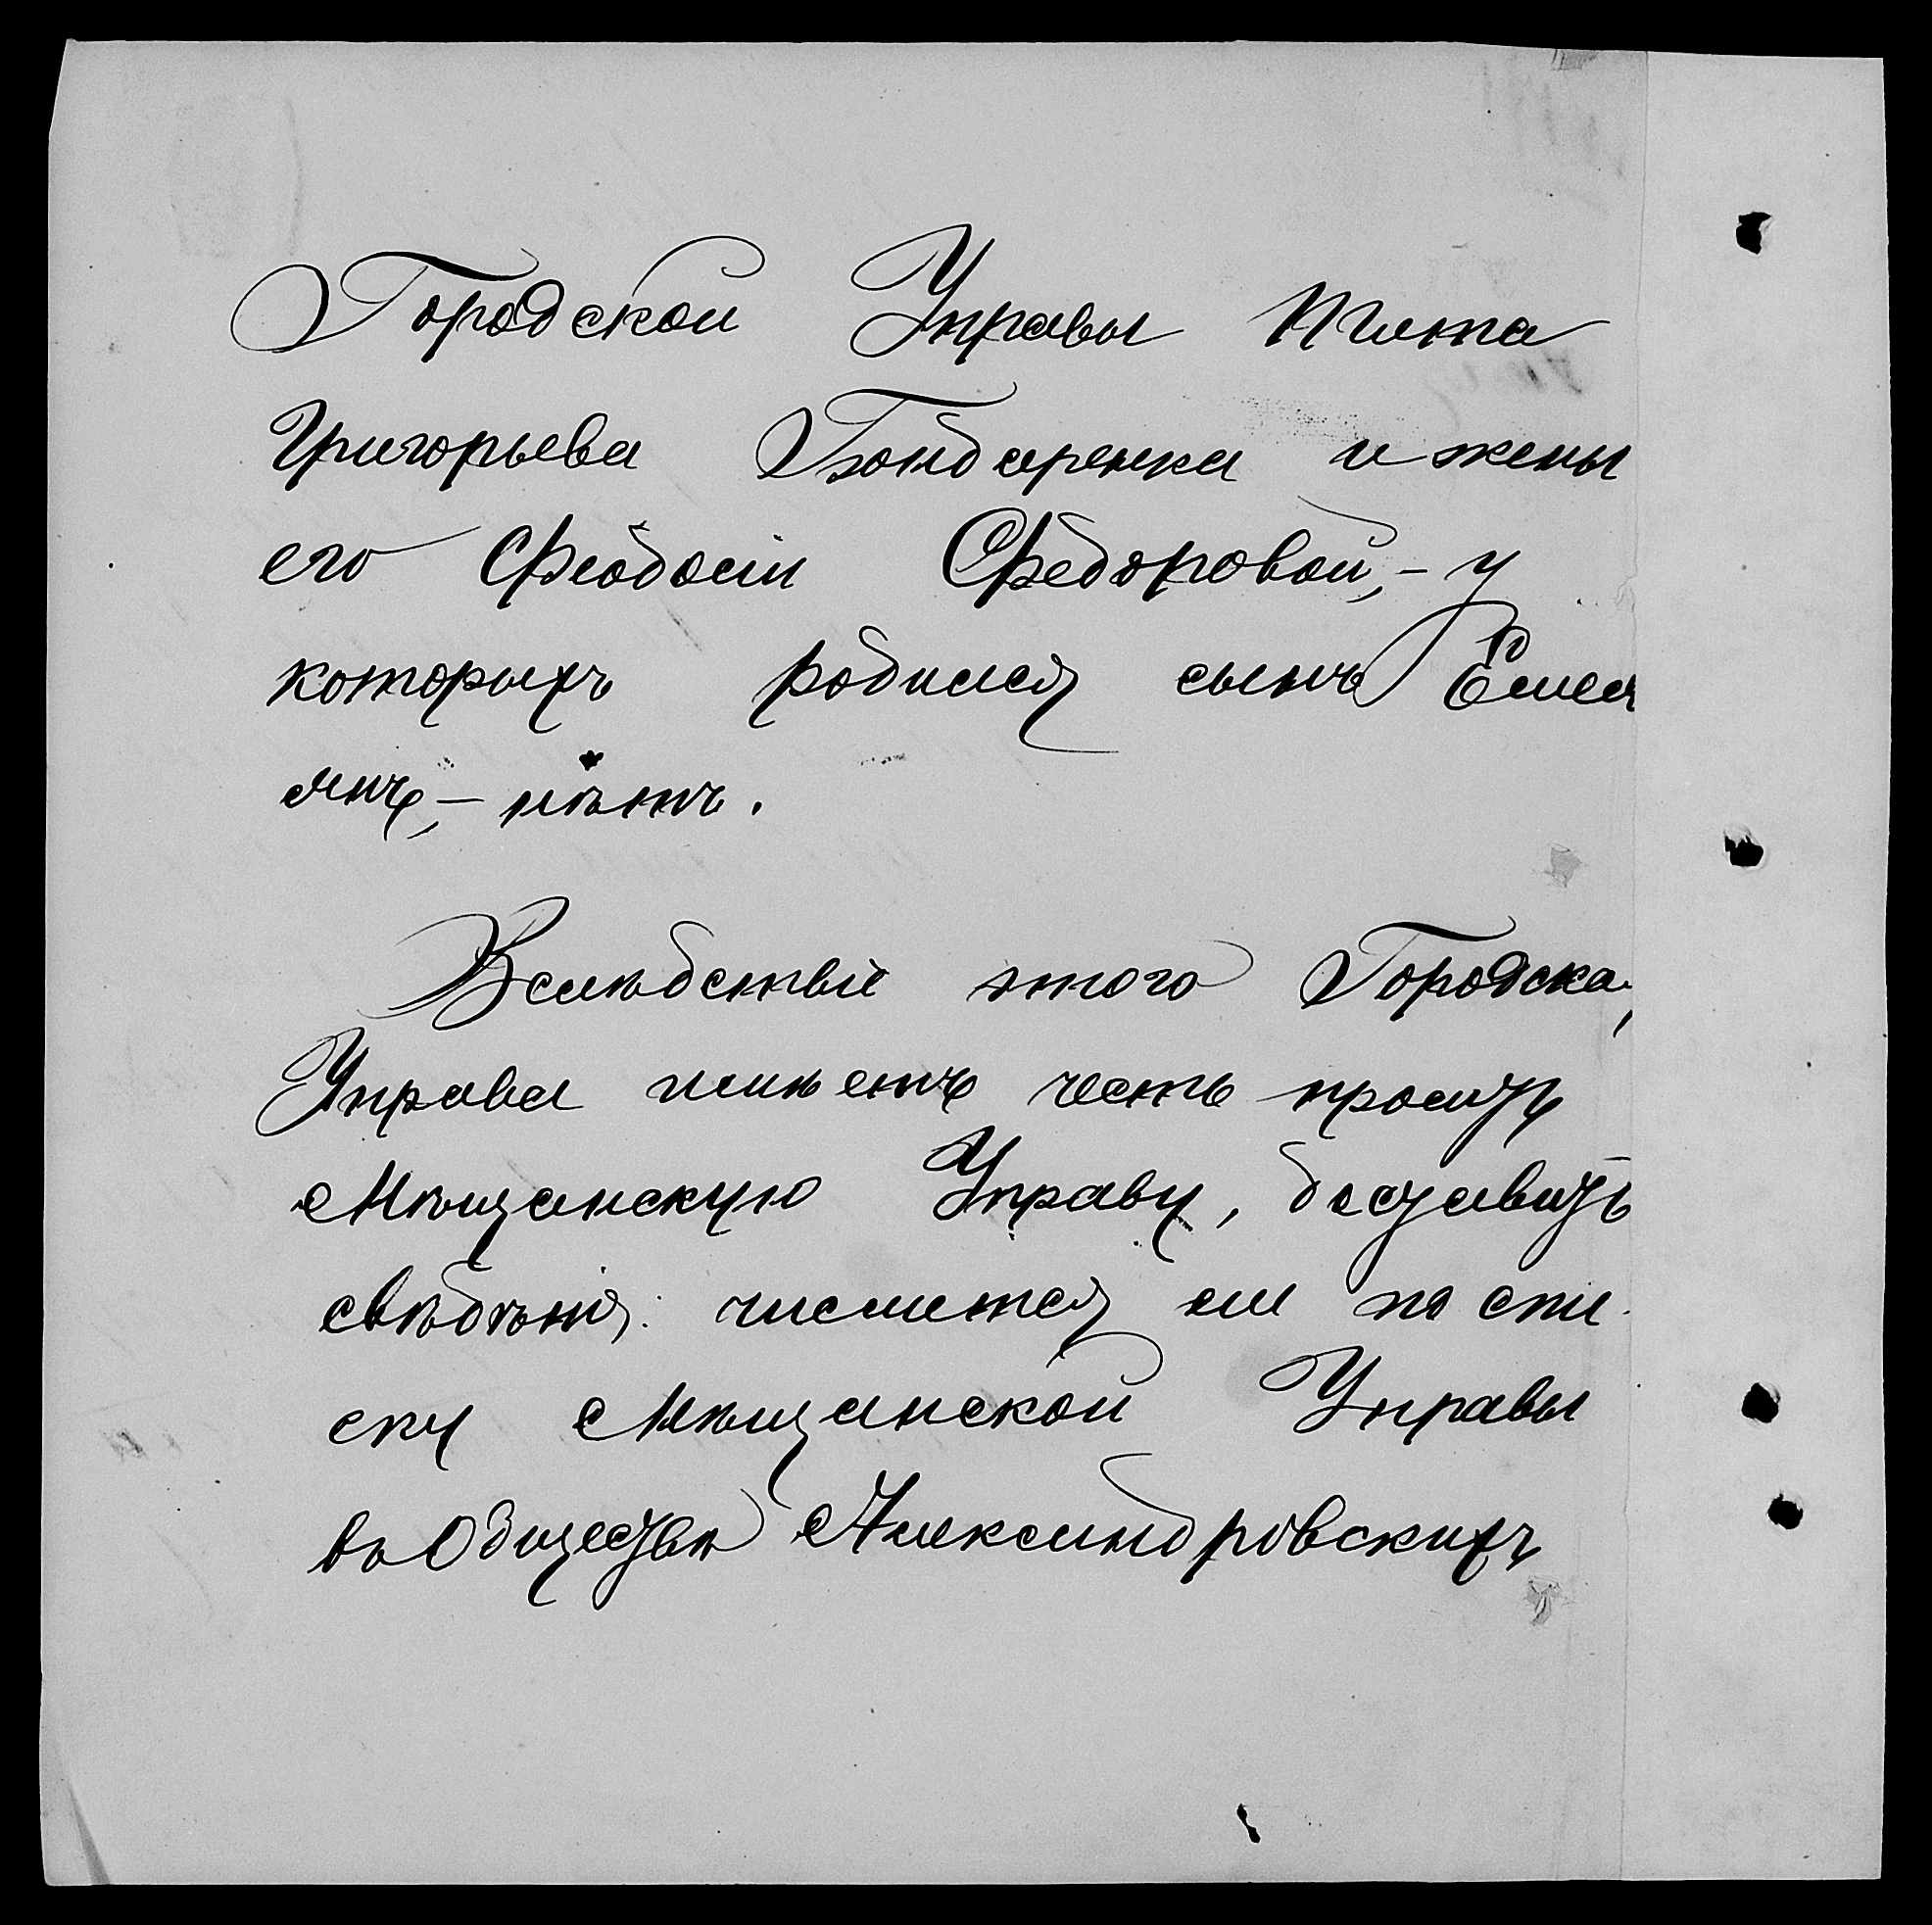 Городской Управы Тита
Григорьева Бондаренка и жены
его Феодосіи Федоровой,– у
которыхъ родился сынъ Емел
янъ,– нѣтъ.
Вслѣдствіе этого Городская
Управа имѣетъ честь просить
Мѣщанскую Управу, доставить
свѣдѣнія: числится ли по спи
ску Мѣщанской Управы
въ Обществѣ Александровскихъ